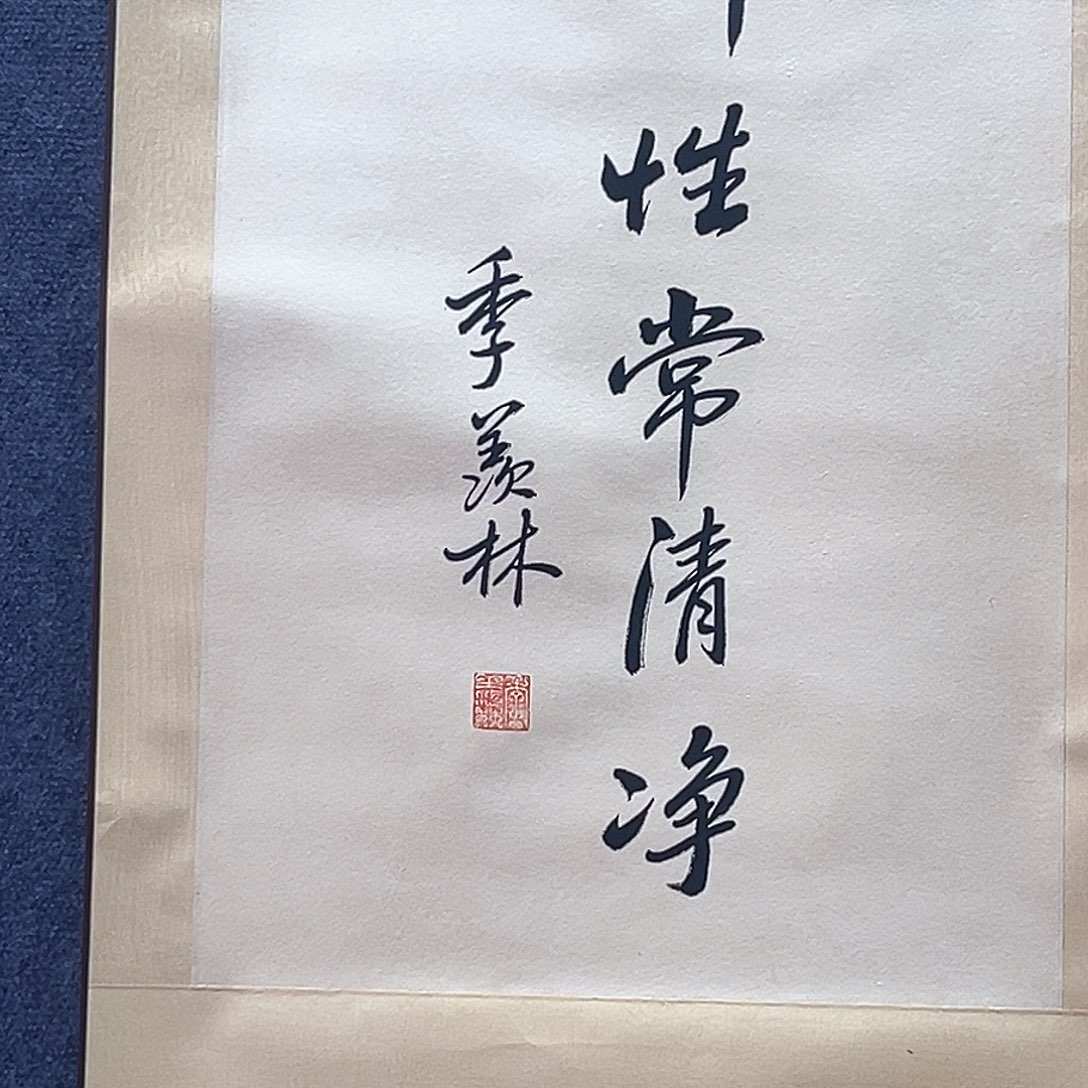 性常清净
季羡林